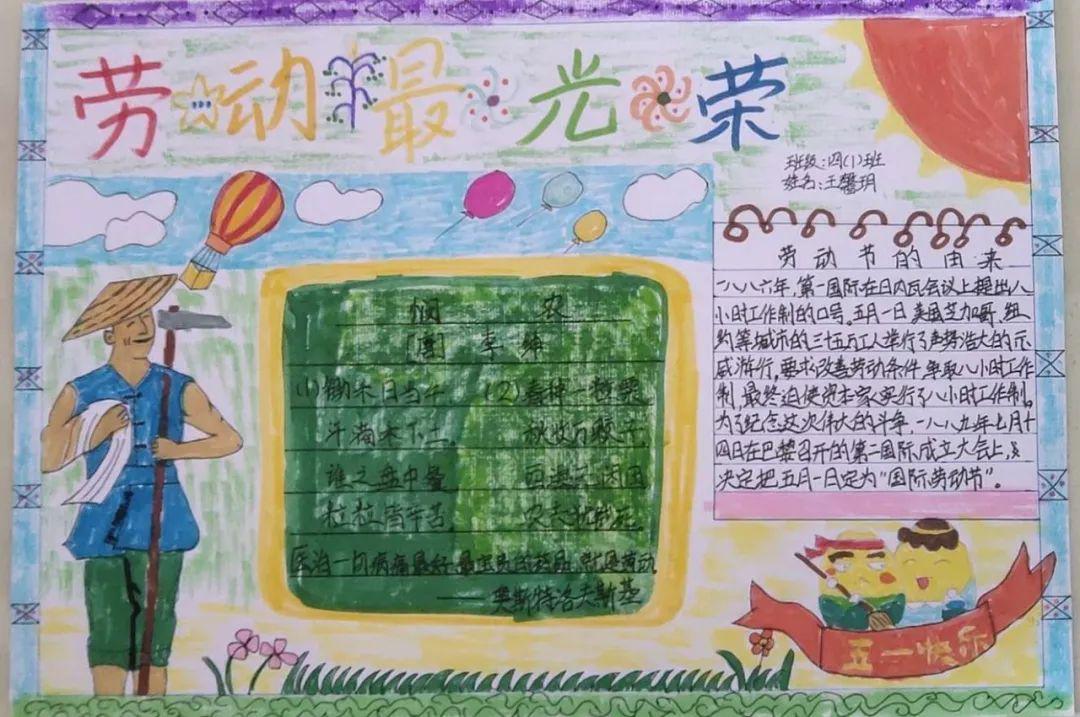 劳动最光荣
班级:四(1)班
姓名:王馨玥
悯 农
[唐] 李绅
(1)锄禾日当午 (2)春种一粒粟,
汗滴禾下土。 秋收万颗子,
谁之盘中餐 四海无闲田
粒粒皆辛苦。 农夫犹饿死。
医治一切病痛最好、最宝贵的药品,就是劳动
——奥斯特洛夫斯基
劳动节的由来
一八八六年,第一国际在日内瓦会议上提出八
小时工作制的口号。五月一日美国芝加哥、纽
约等城市的三十五万工人举行了声势浩大的示
威游行,要求改善劳动条件,争取八小时工作
制,最终迫使资本家实行了八小时工作制。
为了纪念这次伟大的斗争,一八八九年七月十
四日在巴黎召开的第二国际成立大会上,
决定把五月一日定为“国际劳动节”。
五一快乐